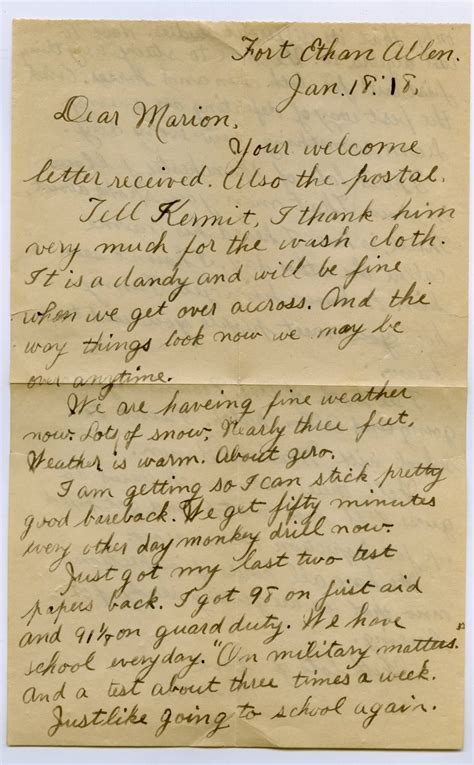 Fort Ethan Allen.
Jan. 18. '18.
Dear Marion,
Your welcome
letter received. Also the postal.
Tell Kermit, I thank him
very much for the wash cloth.
It is a dandy and will be fine
when we get over accross. And the
way things look now we may be
over anytime.
We are haveing fine weather
now. Lots of snow, Nearly three feet,
Weather is warm. About zero.
I am getting so I can stick pretty
good bareback. We get fifty minutes
every other day monkey drill now.
Just got my last two test
papers back. I got 98 on first aid
and on guard duty. We have
school everyday. "On military matters."
and a test about three times a week.
Just like going to school again.